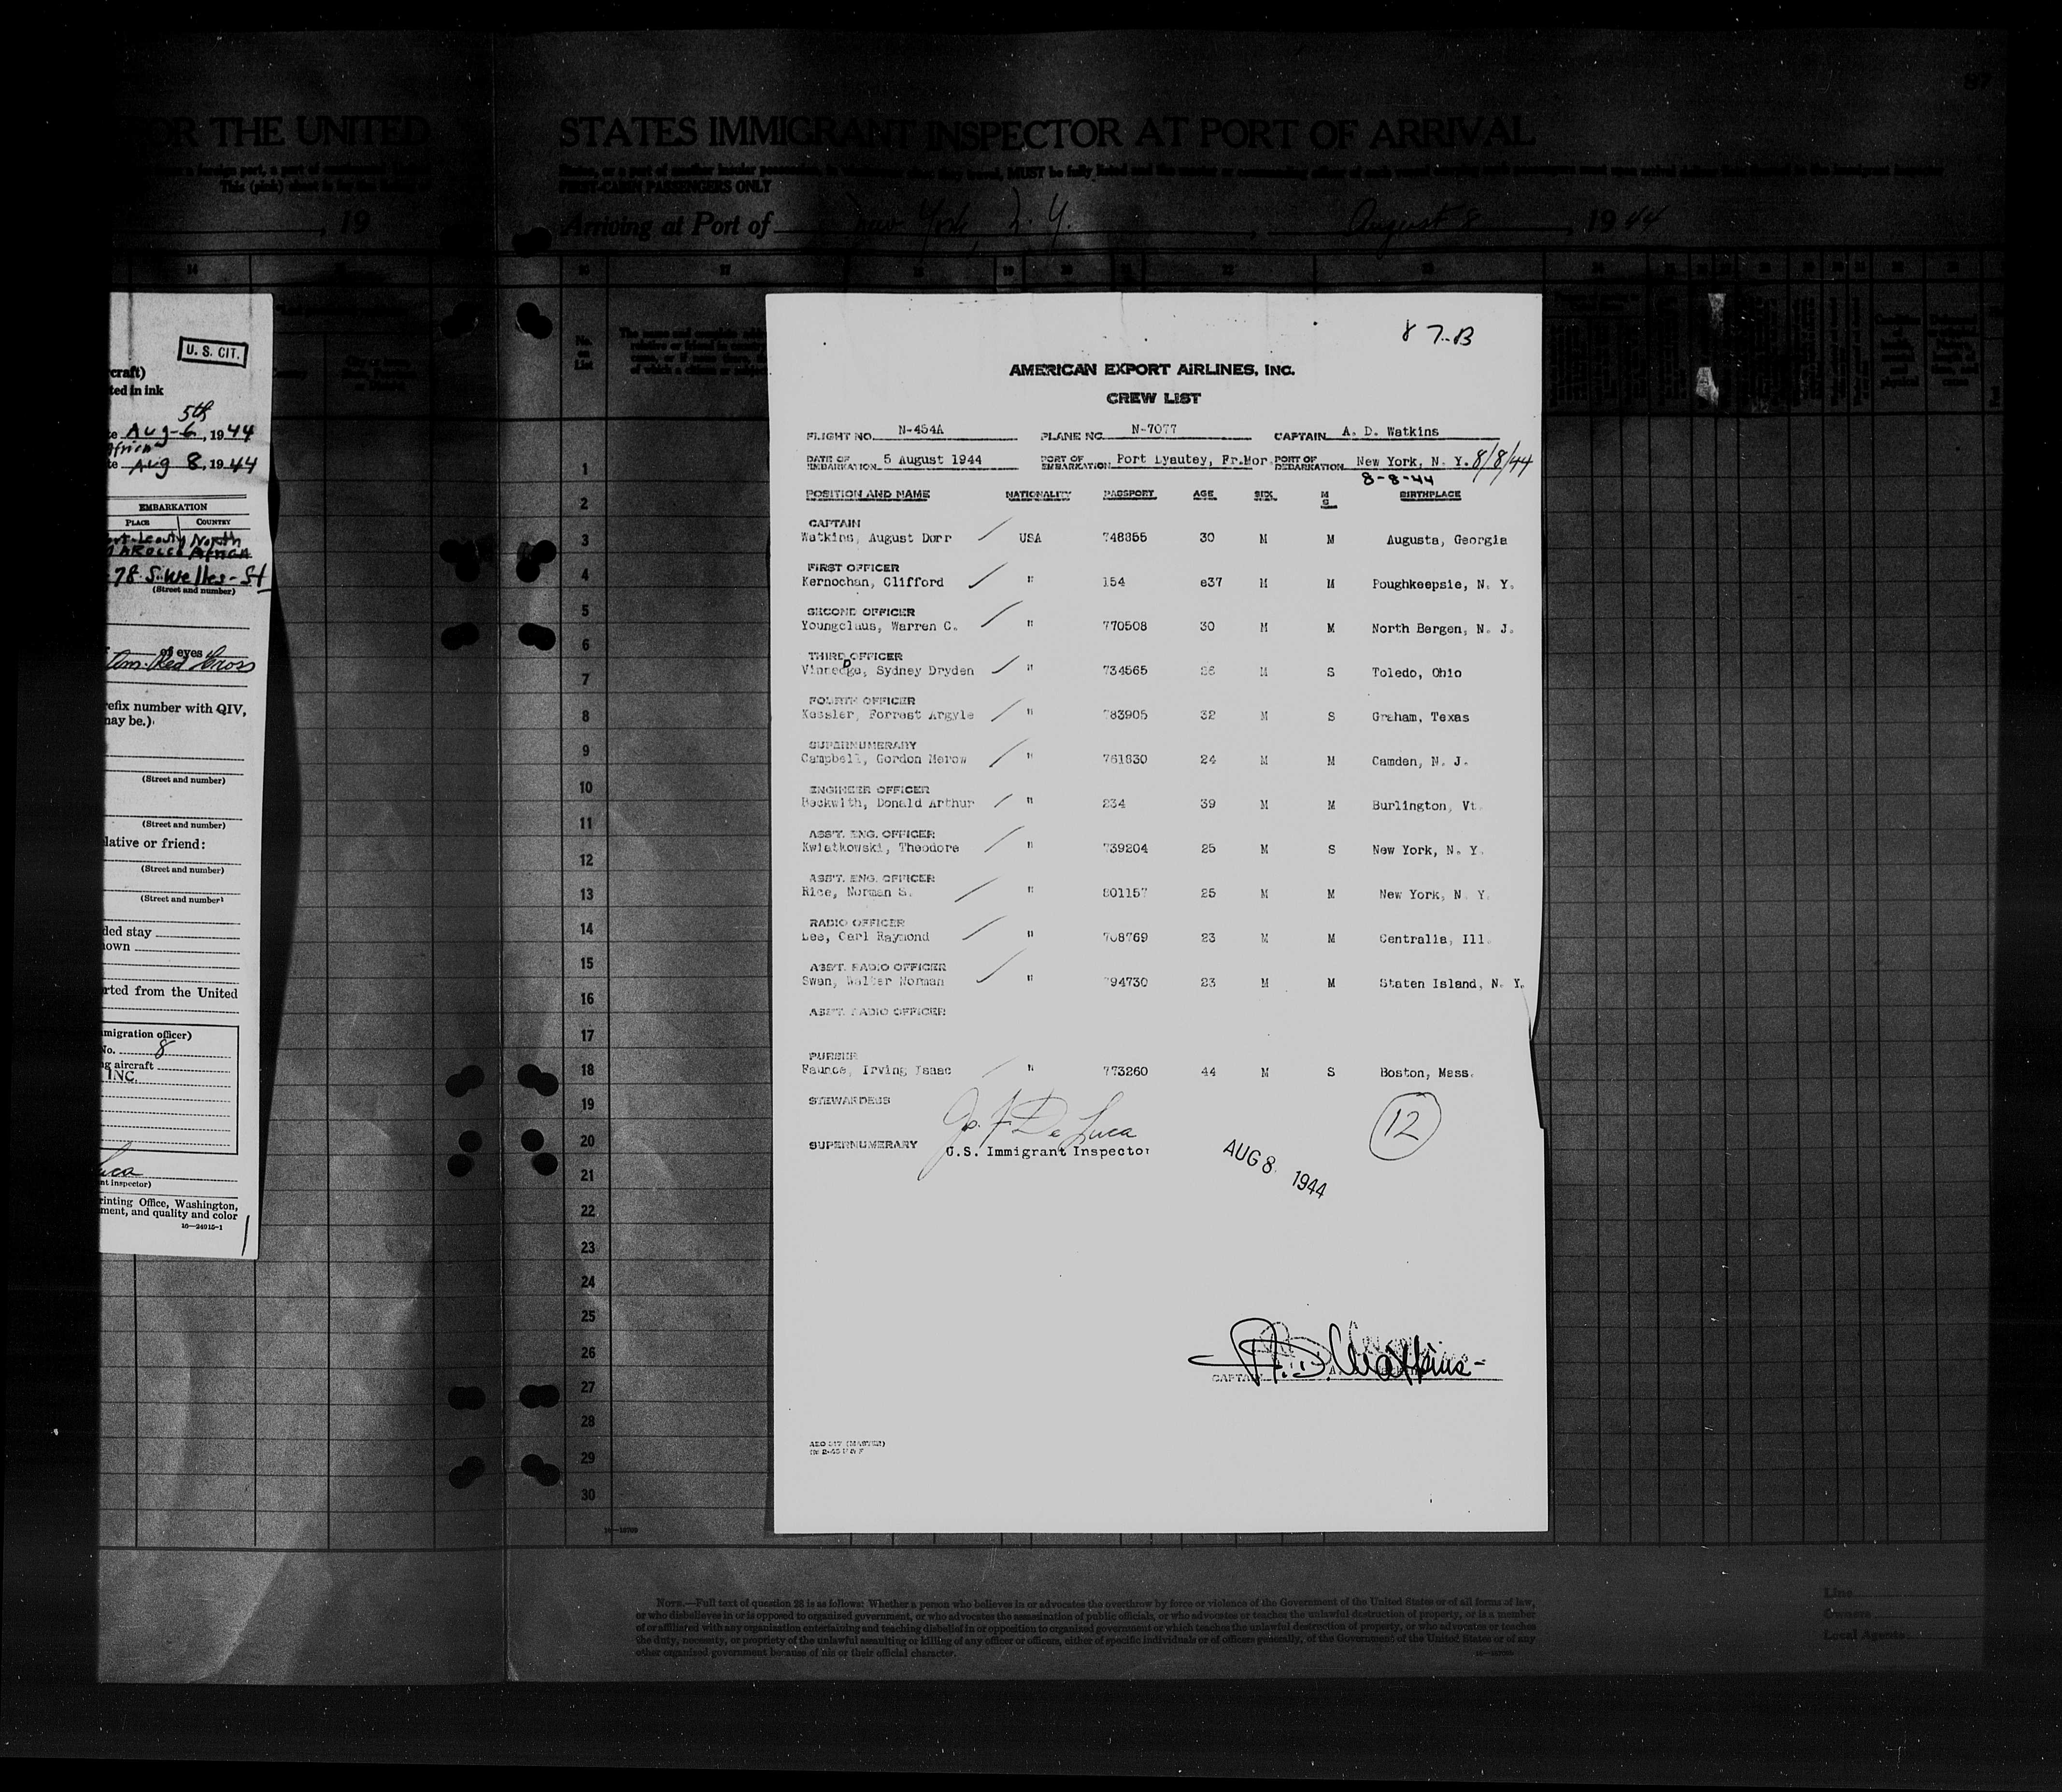 FOR THE UNITED
This (pink) sheet is for
, 19
STATES IMMIGRANT INSPECTOR AT PORT OF ARRIVAL
FIRST-CABIN PASSENGERS ONLY
Arriving at Port of New York, N. Y. , August 8 , 1944
U. S. CIT.
craft)
ted in ink
5th
Aug-6, 1944
Africa
Aug 8, 1944
EMBARKATION
PLACE COUNTRY
North
Africa
78 S. Welles-St
(Street and number)
of eyes
Am. Red Cross
refix number with QIV,
may be.)
(Street and number)
(Street and number)
lative or friend:
(Street and number)
(Street and number)
ded stay
own
rted from the United
migration officer)
No. 8
g aircraft
INC.
uca
nt Inspector)
rinting Office, Washington,
ment, and quality and color
16—24915-1
No. on List
1
2
3
4
5
6
7
8
9
10
11
12
13
14
15
16
17
18
19
20
21
22
23
24
25
26
27
28
29
30
87-B
AMERICAN EXPORT AIRLINES, INC.
CREW LIST
FLIGHT NO. N-454A PLANE NO. N-7077 CAPTAIN A. D. Watkins
DATE OF EMBARKATION 5 August 1944 PORT OF EMBARKATION Port Lyautey, Fr.Mor. PORT OF DEBARKATION New York, N. Y. 8/8/44
8-8-44
POSITION AND NAME NATIONALITY PASSPORT AGE SEX M S BIRTHPLACE
CAPTAIN
Watkins, August Dorr USA 748355 30 M M Augusta, Georgia
FIRST OFFICER
Kernochan, Clifford " 154 e37 M M Poughkeepsie, N. Y.
SECOND OFFICER
Youngclaus, Warren C. " 770508 30 M M North Bergen, N. J.
THIRD OFFICER
Vinnedge, Sydney Dryden " 734565 26 M S Toledo, Ohio
FOURTH OFFICER
Kessler, Forrest Argyle " 783905 32 M S Graham, Texas
SUPERNUMERARY
Campbell, Gordon Merow " 761830 24 M M Camden, N. J.
ENGINEER OFFICER
Beckwith, Donald Arthur " 234 39 M M Burlington, Vt.
ASS'T. ENG. OFFICER
Kwiatkowski, Theodore " 739204 25 M S New York, N. Y.
ASS'T. ENG. OFFICER
Rice, Norman S. " 801157 25 M M New York, N. Y.
RADIO OFFICER
Lee, Carl Raymond " 708769 23 M M Centralia, Ill.
ASS'T. RADIO OFFICER
Swan, Walter Norman " 794730 23 M M Staten Island, N. Y.
ASS'T. RADIO OFFICER
PURSER
Faunce, Irving Isaac " 773260 44 M S Boston, Mass.
STEWARDESS
SUPERNUMERARY
Jos. F. De Luca
U.S. Immigrant Inspector
12
AUG 8 1944
A. D. Watkins
CAPTAIN
NOTE.—Full text of question 28 is as follows: Whether a person who believes in or advocates the overthrow by force or violence of the Government of the United States or of all forms of law,
or who disbelieves in or is opposed to organized government, or who advocates the assassination of public officials, or who advocates or teaches the unlawful destruction of property, or is a member
of or affiliated with any organization entertaining and teaching disbelief in or opposition to organized government or which teaches the unlawful destruction of property, or who advocates or teaches
the duty, necessity, or propriety of the unlawful assaulting or killing of any officer or officers, either of specific individuals or of officers generally, of the Government of the United States or of any
other organized government because of his or their official character.
Line
Owners
Local Agents